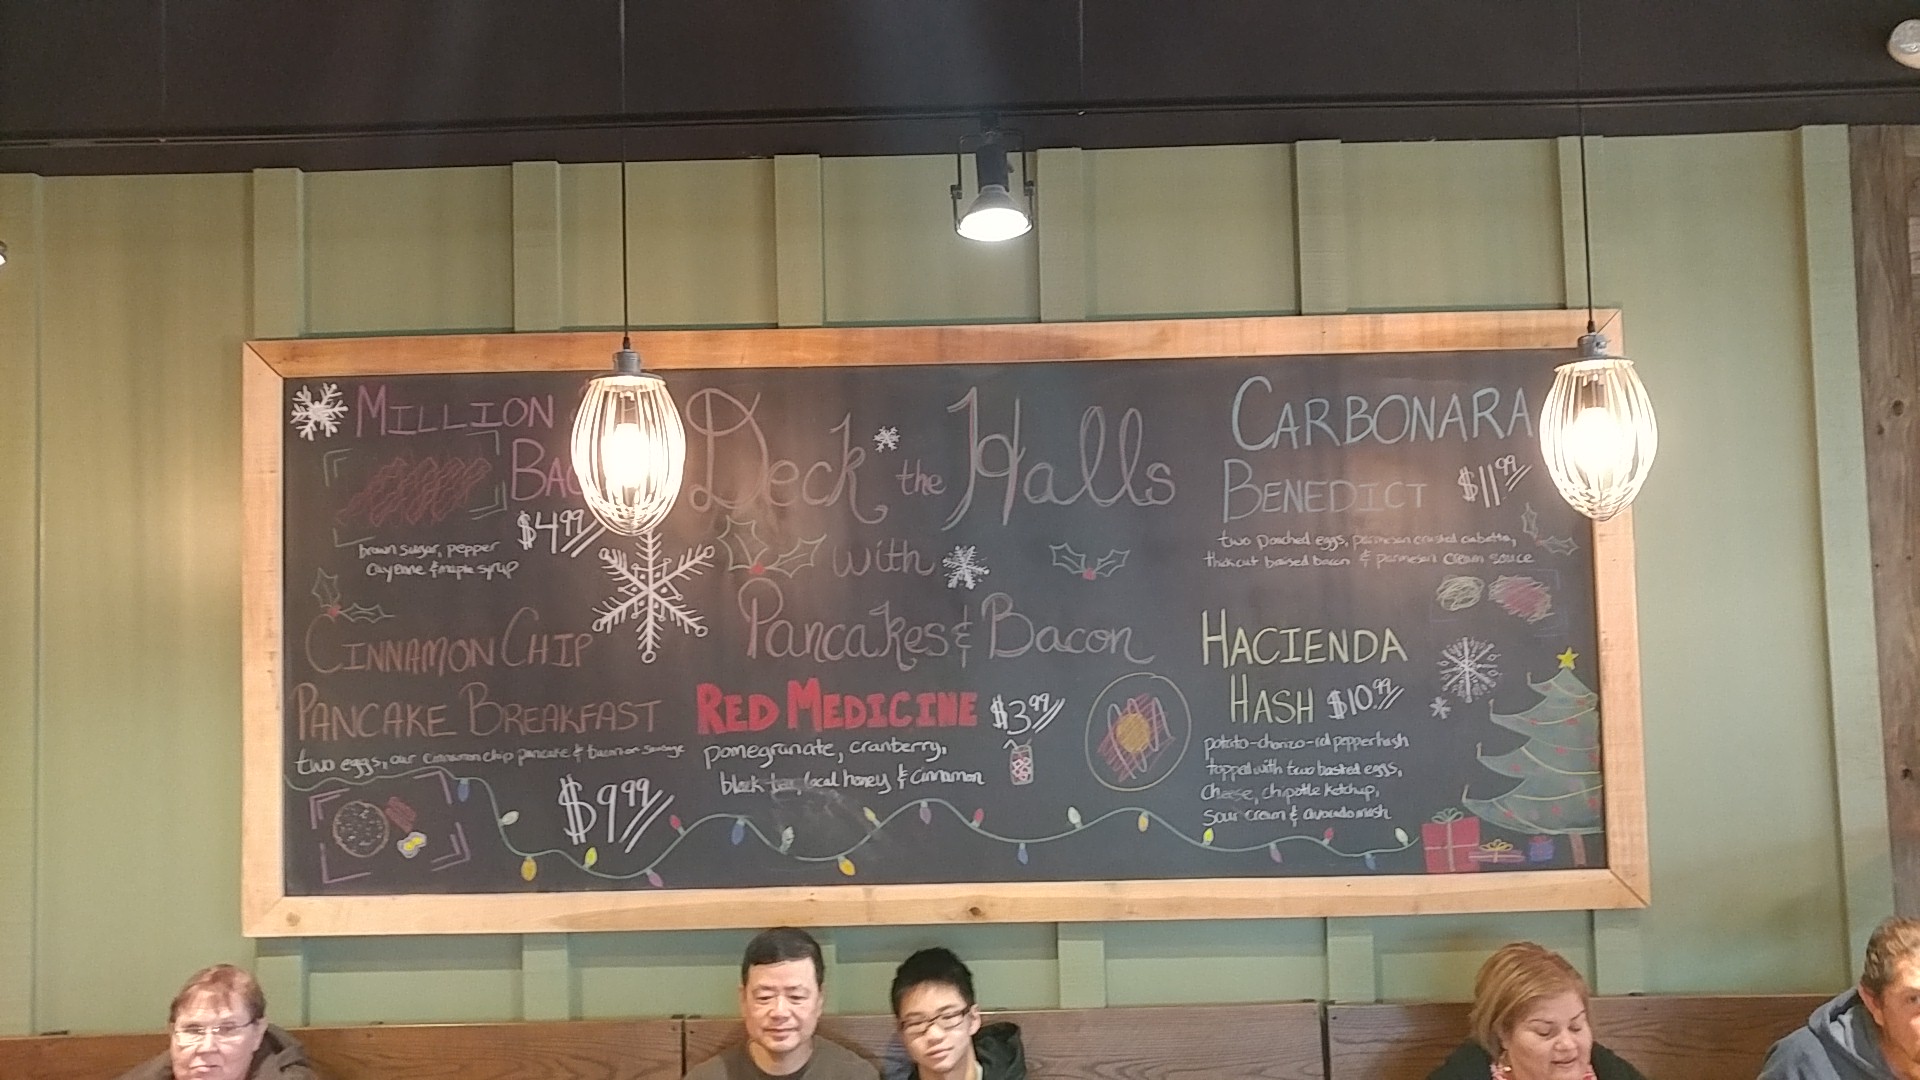 MILLION
BAC
$4.99
brown sugar, pepper
cayenne & maple syrup
CINNAMON CHIP
PANCAKE BREAKFAST
two eggs, our cinnamon chip pancake & bacon or sausage
$9.99
Deck the Halls
with
Pancakes & Bacon
RED MEDICINE $3.99
pomegranate, cranberry,
black tea, local honey & cinnamon
CARBONARA
BENEDICT $11.99
two poached eggs, parmesan crusted ciabatta,
thick cut braised bacon & parmesan cream sauce
HACIENDA
HASH $10.99
potato-chorizo-red pepper hash
topped with two basted eggs,
cheese, chipotle ketchup,
sour cream & avocado mash